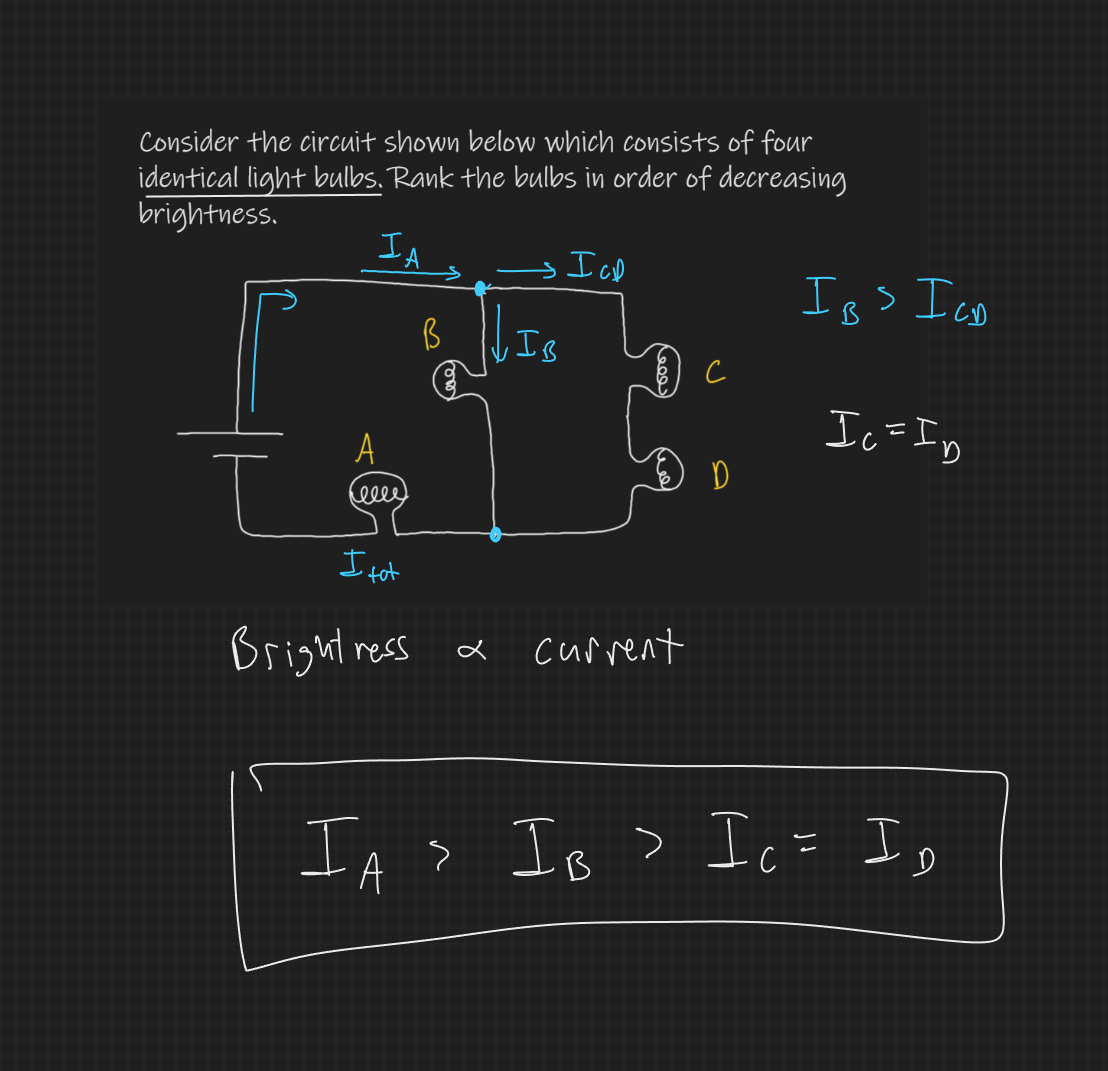 Consider the circuit shown below which consists of four
identical light bulbs. Rank the bulbs in order of decreasing
brightness.
I_A
I_CD
I_B > I_CD
B
I_B
C
I_C = I_D
A
D
I_tot
Brightness ∝ current
I_A > I_B > I_C = I_D